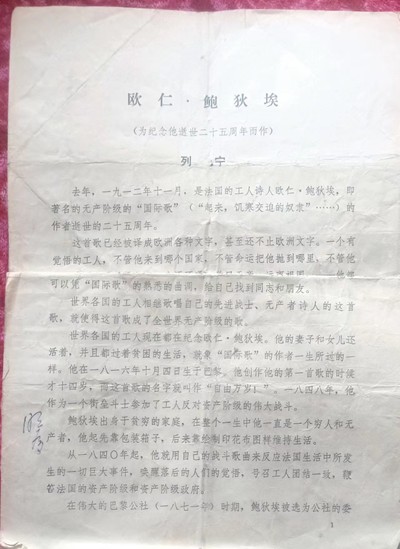 欧仁·鲍狄埃
（为纪念他逝世二十五周年而作）
列 宁
去年，一九一二年十一月，是法国的工人诗人欧仁·鲍狄埃，即
著名的无产阶级的“国际歌”（“起来，饥寒交迫的奴隶”……）的
作者逝世的二十五周年。
这首歌已经译成欧洲各种文字，甚至还不止欧洲文字。一个有
觉悟的工人，不管他来到哪个国家，不管命运把他抛到哪里，不管他
可以凭“国际歌”的熟悉的曲调，给自己找到同志和朋友。
世界各国的工人相继歌唱自己的先进战士、无产者诗人的这首
歌，就使得这首歌成了全世界无产阶级的歌。
世界各国的工人现在都在纪念欧仁·鲍狄埃。他的妻子和女儿还
活着，并且都过着贫困的生活，就象“国际歌”的作者一生所过的一
样。他在一八一六年十月四日生于巴黎。他创作他的第一首歌的时候
才十四岁，而这首歌的名字就叫作“自由万岁！”。一八四八年，他
作为一个街垒斗士参加了工人反对资产阶级的伟大战斗。
鲍狄埃出身于贫穷的家庭，在整个一生中他一直是一个穷人和无
产者，他起先靠包装箱子，后来靠绘制印花布图样维持生活。
从一八四〇年起，他就用自己的战斗歌曲来反应法国生活中所发
生的一切巨大事件，唤醒落后的人们的觉悟，号召工人团结一致，鞭
笞法国的资产阶级和资产阶级政府。
在伟大的巴黎公社（一八七一年）时期，鲍狄埃被选为公社的委
1